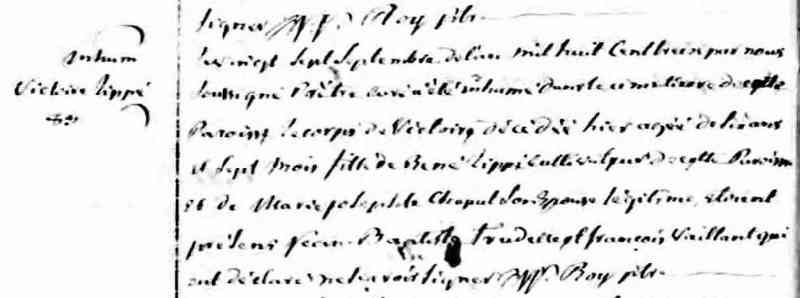 signer PP. Roy ptre
Inhum
Victoire Zippé
Le vingt sept Septembre de l'an mil huit Cent treize par nous
Soussigné Prêtre Curé a été inhumé dans le cimetiere de cette
Paroisse le corps de Victoire décédée hier agée de six ans
et Sept mois fille de René Zippé Cultivateur de cette Paroisse
et de Marie Josephte Chaput Son Epouse légitime, étoient
présens Jean Baptiste Trudel et françois Vaillant qui
ont déclaré ne savoir signer PP. Roy ptre